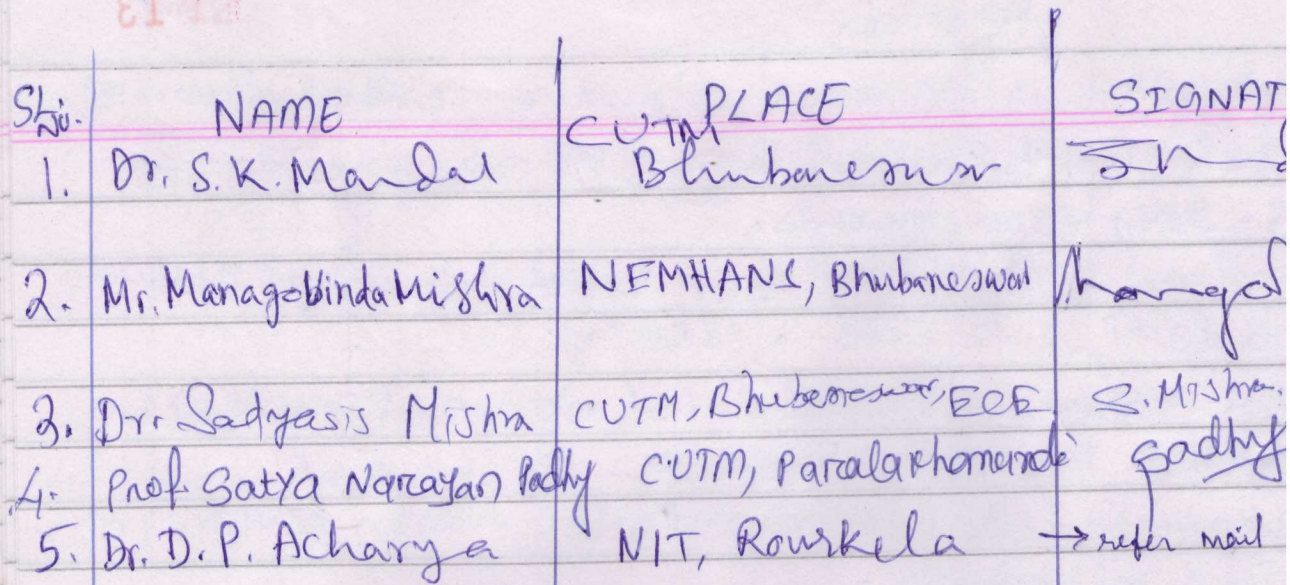 Sl. No. NAME PLACE SIGNAT
1. Dr. S. K. Mandal CUTM, Bhubaneswar
2. Mr. Managobinda Mishra NEMHANS, Bhubaneswar
3. Dr. Sadyasis Mishra CUTM, Bhubaneswar, ECE S. Mishra.
4. Prof. Satya Narayan Padhy CUTM, Paralakhemundi Padhy
5. Dr. D. P. Acharya NIT, Rourkela → refer mail